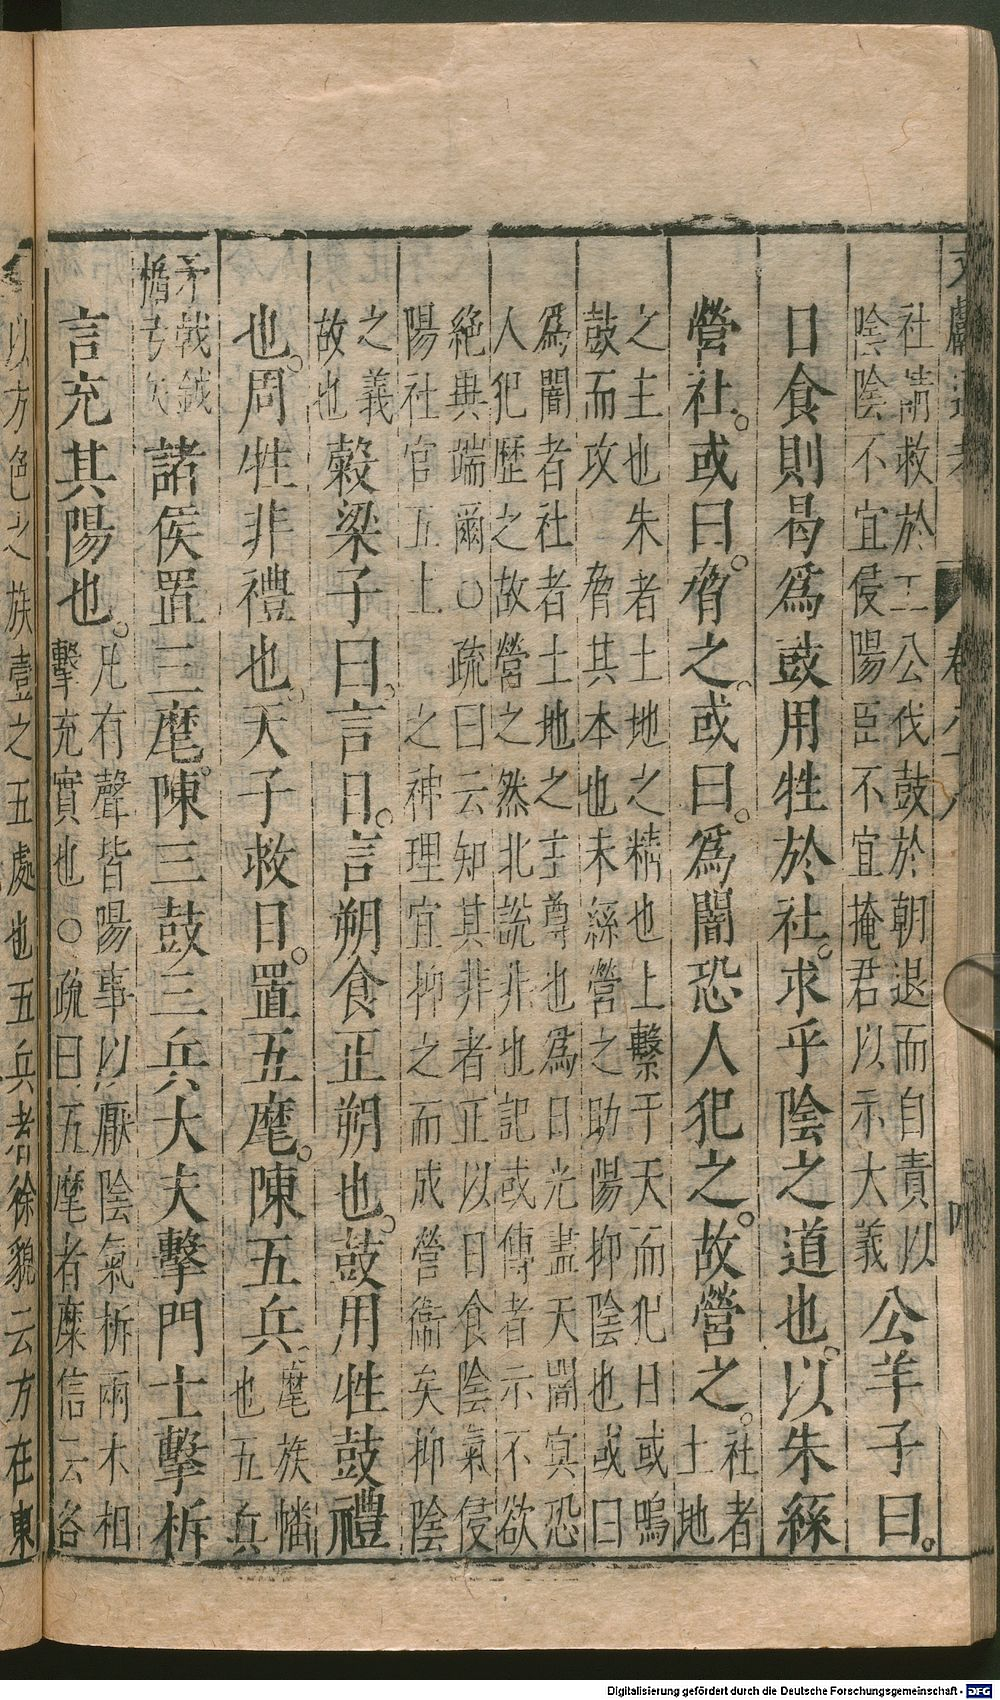 社請救於上公伐鼓於朝退而自責以
陰陰不宜侵陽臣不宜掩君以示大義
公羊子曰。
日食則曷爲鼓用牲於社。求乎陰之道也。以朱絲
營社。或曰。脅之。或曰。爲闇恐人犯之。故營之。
社者
土地
之主也朱者土地之精也上繫于天而犯日或鳴
鼓而攻 脅其本也朱絲營之助陽抑陰也或曰
爲闇者社者土地之主尊也爲日光盡天闇冥恐
人犯歷之故營之然北說非也記或傳者示不欲
絕典端爾○疏曰云知其非者正以日食陰氣侵
陽社官五土 之神理宜抑之而成營衞矣抑陰
之義
故也
榖梁子曰。言日。言朔食正朔也。鼓用牲鼓禮
也。周牲非禮也。天子救日。置五麾。陳五兵
麾族幡
也五兵
矛戟鉞
楯弓矢
諸侯置三麾。陳三鼓三兵大夫擊門士擊柝
言充其陽也。
凡有聲皆陽事以厭陰氣柝兩木相
擊充實也○疏曰五麾者糜信云各
以方色之族壹之五處也五兵者徐貌云方在東
文獻通考
卷八十八
四
Digitalisierung gefördert durch die Deutsche Forschungsgemeinschaft - DFG